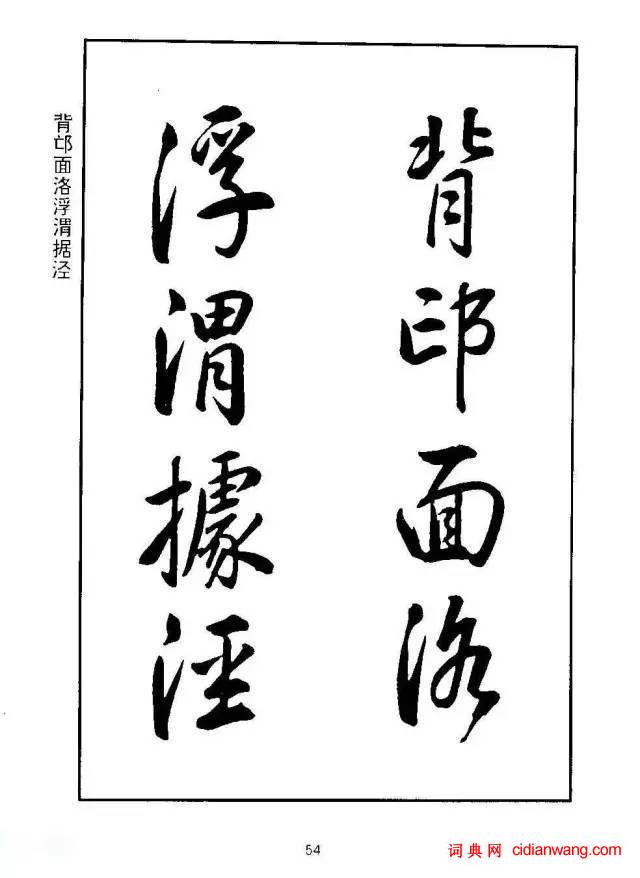 背邙面洛
浮渭據涇
背邙面洛浮渭据泾
54
词典网 cidianwang.com